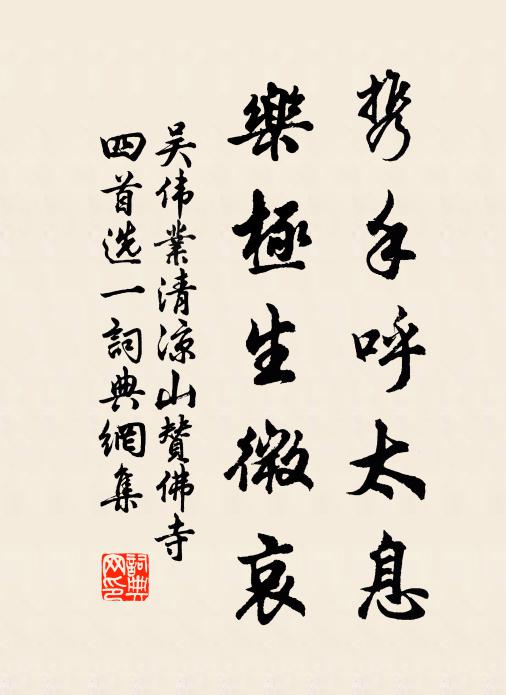 携手呼太息
樂極生微哀
吴伟業清涼山贊佛寺
四首选一詞典網集
詞典
网印